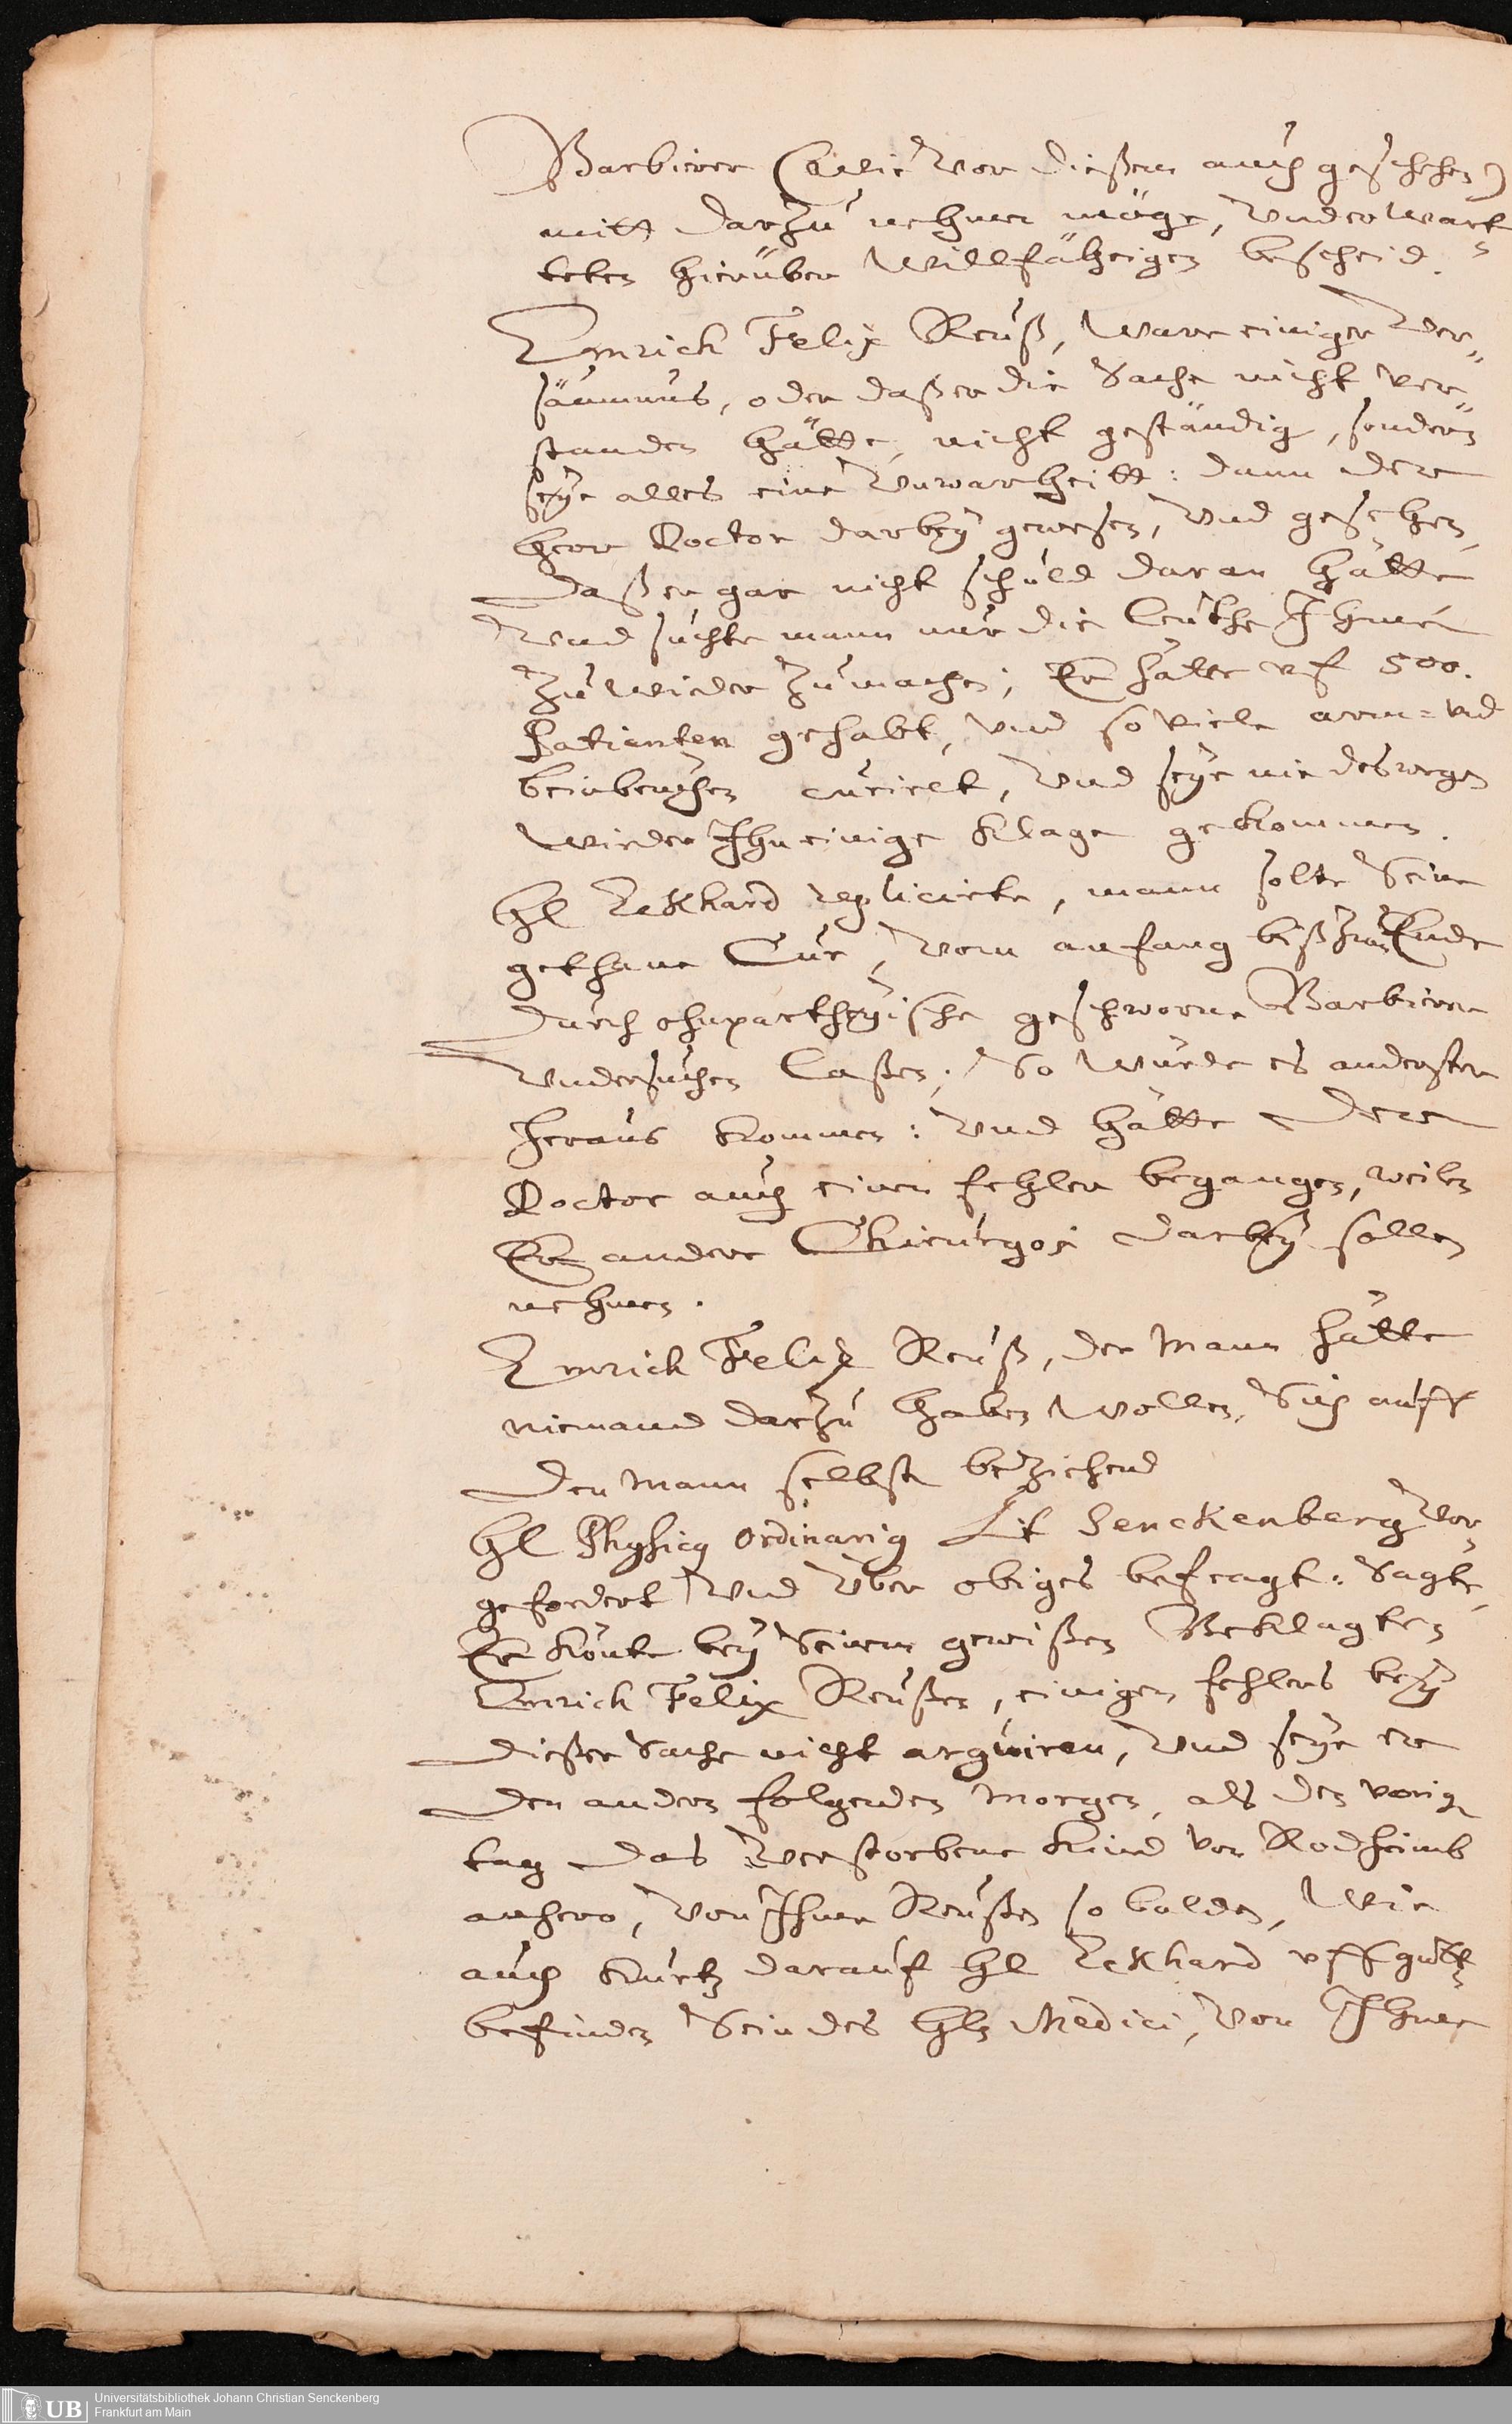 Barbierer (wie vor dießem auch geschehen)
mitt darzu nehmen möge, vnd erwart
teten hierüber willfährigen bescheid.
Emrich Felix Reuß, ware einiger ver
säumnus, oder daß er die Sache nicht ver
standen hätte, nicht geständig, sondern
seye alles eine Vnwarheitt: dann der
herr Doctor darbey gewesen, vnd gesehen,
daß er gar nicht schuld daran hätte
vnd suchte mann nur die leuthe Ihme
zu wieder zu machen; Er hätte vf 500.
Patienten gehabt, vnd so viele arm= vnd
beinbruchen curiret, vnd seye nie deswegen
wieder Ihn einige Klage gekommen.
Hl Eckhard replicirte, mann solte Seine
gethane Cur, vom anfang biß zum Ende
durch ohnpartheyische geschworne Barbierer
vndersuchen laßen; So würde es anderster
heraus kommen: vnd hätte der
Doctor auch einen fehler begangen, weilen
Er andere Chirurgos darbey sollen
nehmen.
Emrich Felix Reuß, der Mann hätte
niemand darzu haben wollen, Sich auff
den Mann selbst beziehend
Hl Physicus Ordinarius Lit Senckenberg vor
gefordert vnd über obiges befragt: Sagte,
Er könte bey Seinem gewißen Beklagten
Emrich Felix Reußen, einigen fehlers bey
dießer Sache nicht arguiren, vnd seye er
den andern folgenden Morgen, als den vorig
tag das verstorbene Kind von Rodheimb
anhero, von Ihme Reußen so balden, wie
auch kurtz darauf Hl Eckhard vff gutt
befinden Sein des Hln Medici, von Ihme
Universitätsbibliothek Johann Christian Senckenberg
Frankfurt am Main
UB